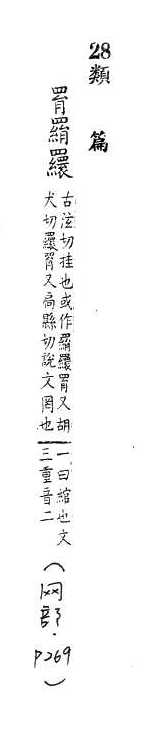 28類篇
罥羂䍻
古泫切挂也或作羂䍻罥又胡
犬切䍻罥又扃縣切說文网也
一曰綰也文
三重音二
(网部.
P269)